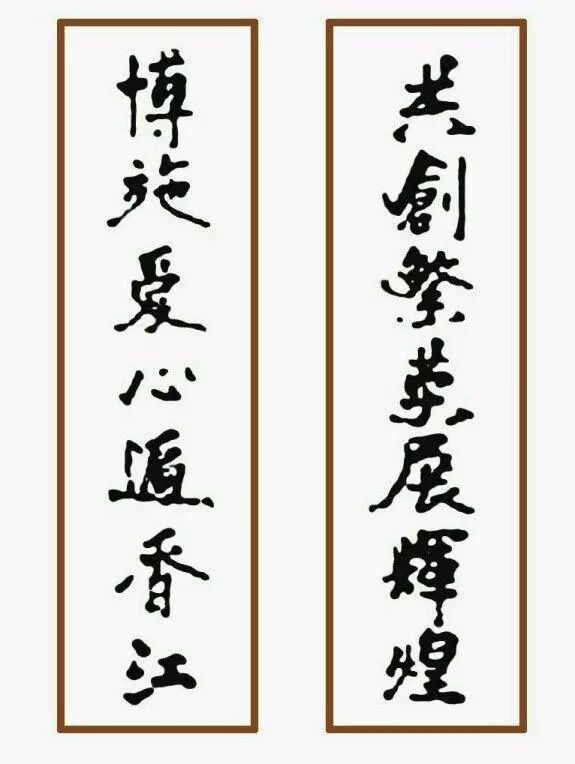 共創繁榮展輝煌
博施愛心遍香江